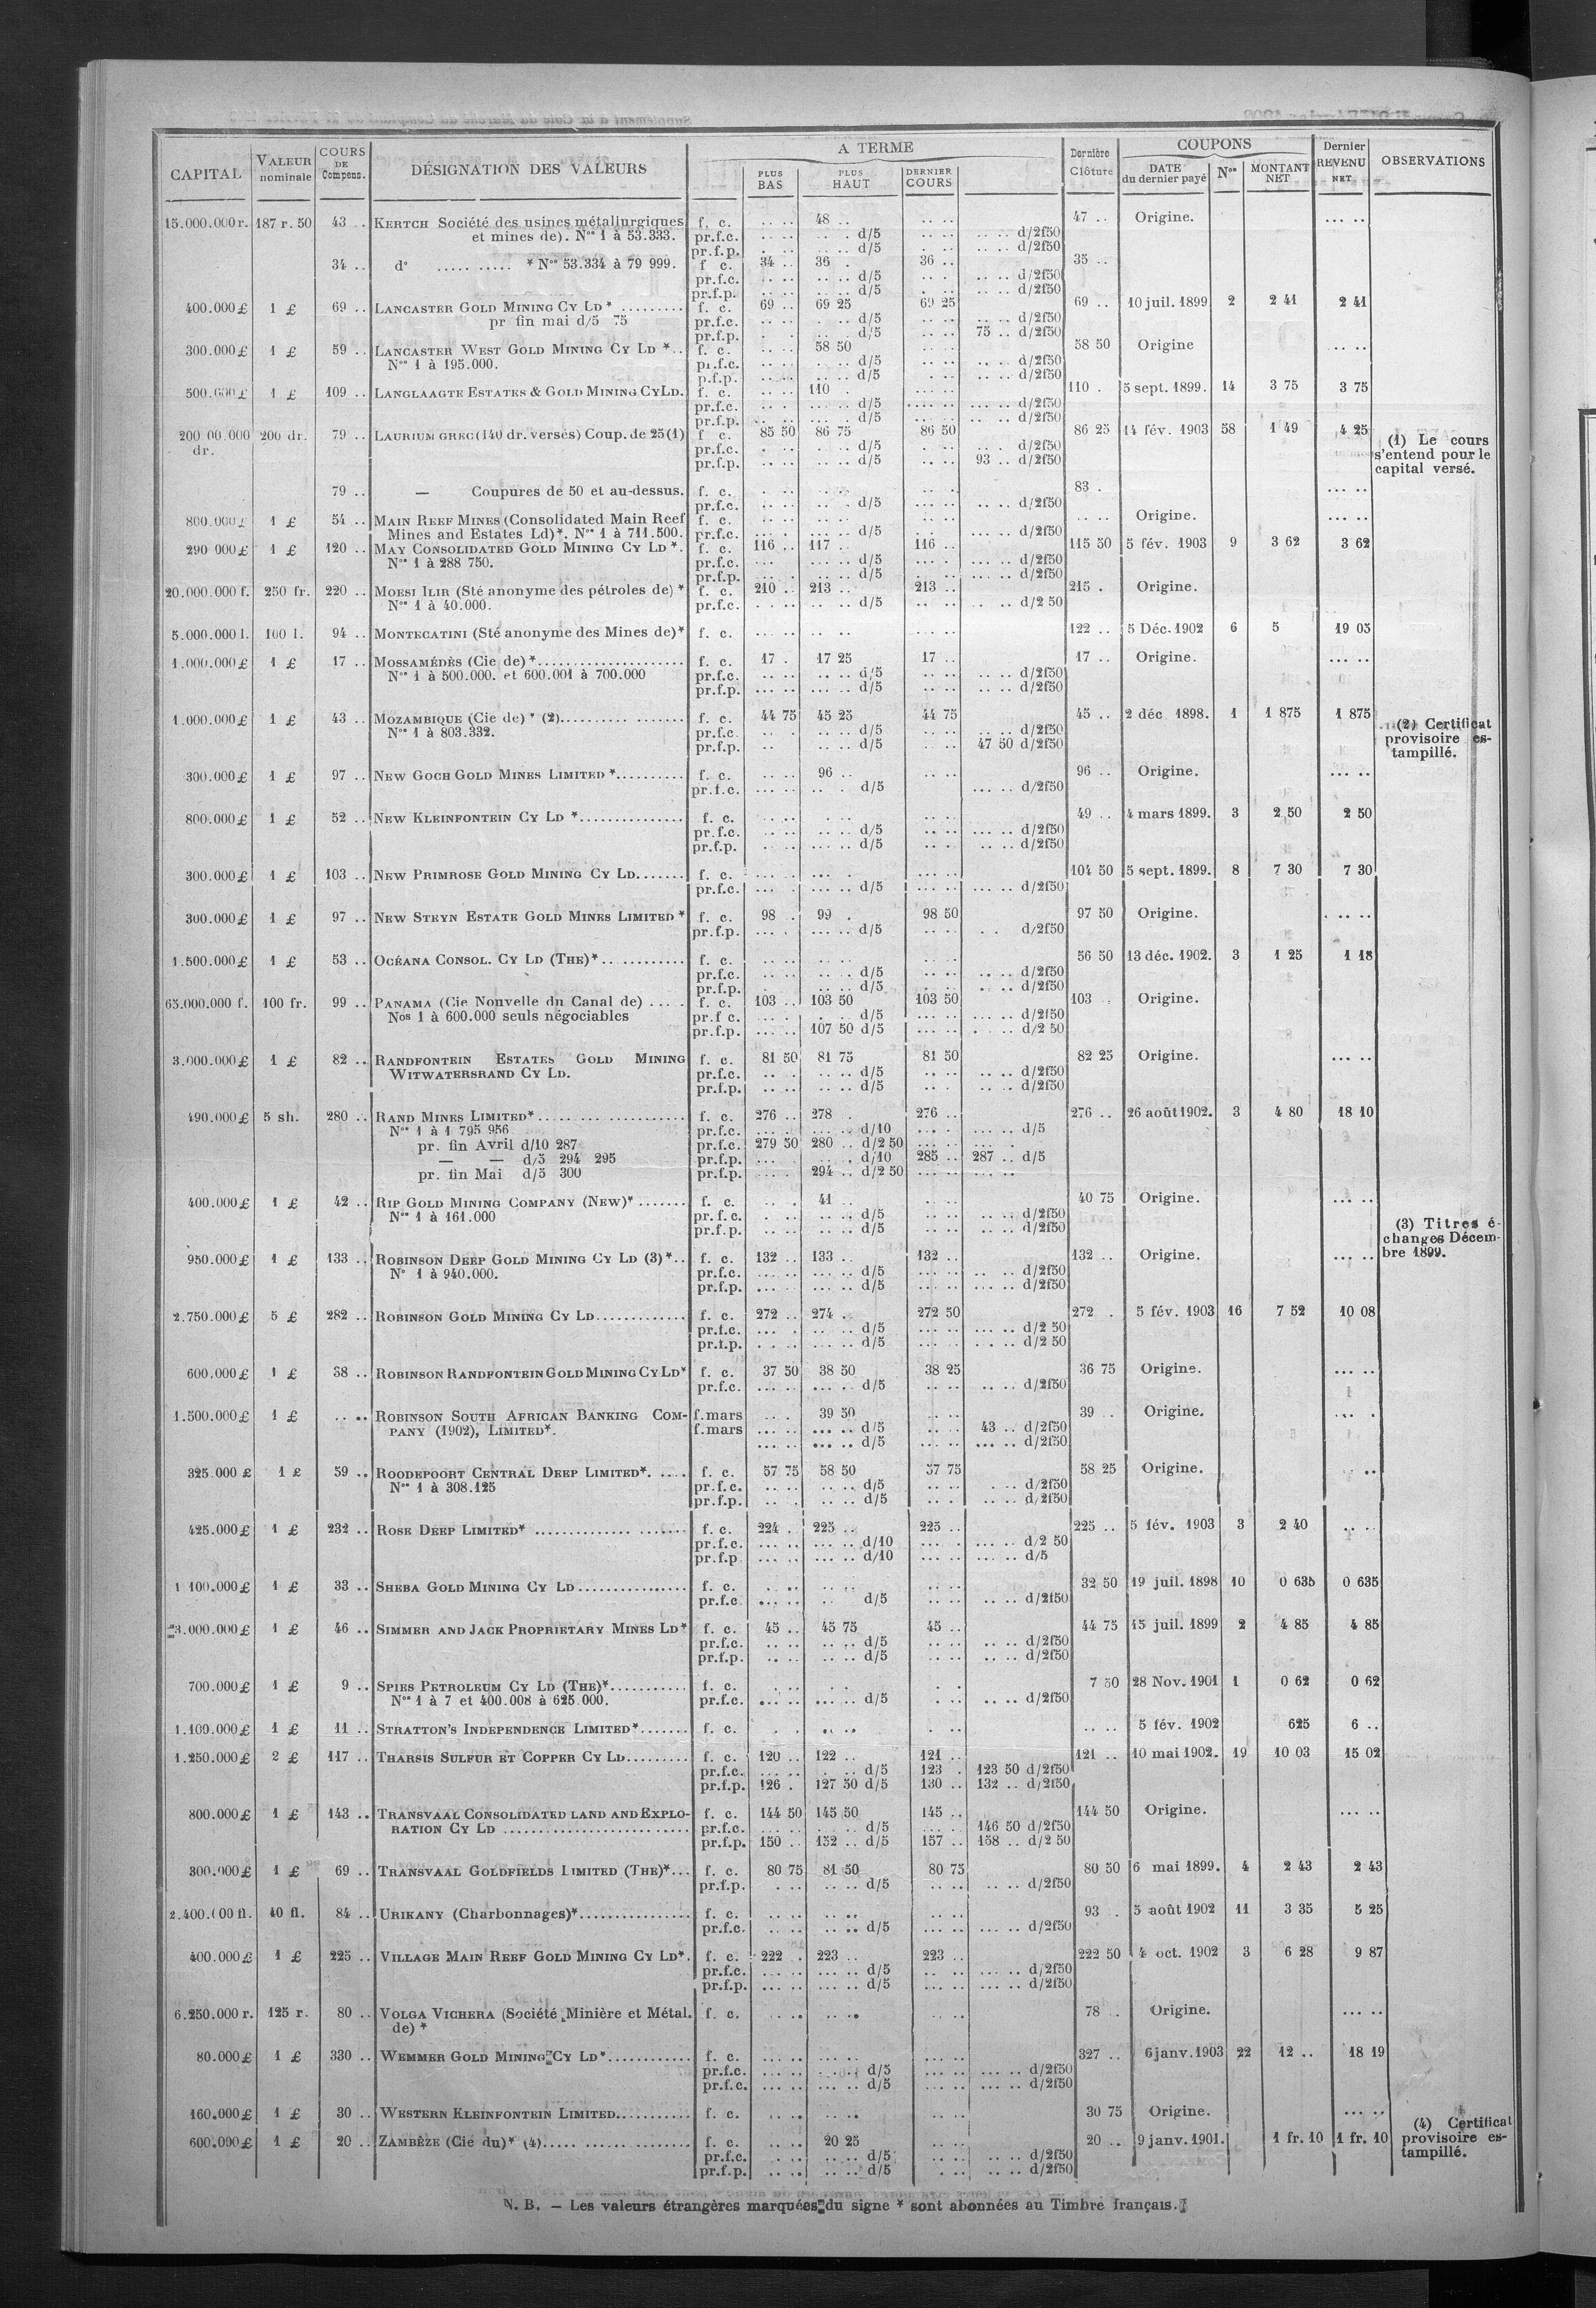 CAPITAL VALEUR nominale COURS DE Compens. DÉSIGNATION DES VALEURS A TERME PLUS BAS PLUS HAUT DERNIER COURS Dernière Clôture COUPONS DATE du dernier payé Nos MONTANT NET Dernier REVENU NET OBSERVATIONS
15.000.000 r. 187 r. 50 43 .. KERTCH Société des usines métallurgiques f. c. 48 .. 47 .. Origine.
et mines de). Nos 1 à 53.333. pr.f.c. d/5 d/2f50
pr.f.p. d/5 d/2f50
34 .. d° * Nos 53.334 à 79 999. f c. 34 .. 36 . 36 .. 35 ..
pr.f.c. d/5 d/2f50
pr.f.p. d/5 d/2f50
400.000 £ 1 £ 69 .. LANCASTER GOLD MINING CY LD * f. c. 69 .. 69 25 69 25 69 .. 10 juil. 1899 2 2 41 2 41
pr fin mai d/5 75 pr.f.c. d/5 d/2f50
pr.f.p. d/5 75 .. d/2f50
300.000 £ 1 £ 59 .. LANCASTER WEST GOLD MINING CY LD *.. f. c. 58 50 58 50 Origine
Nos 1 à 195.000. pr.f.c. d/5 d/2f50
p.f.p. d/5 d/2f50
1 £ 109 .. LANGLAAGTE ESTATES & GOLD MINING CY LD. f. c. 110 . 110 . 5 sept. 1899. 14 3 75 3 75
pr.f.c. d/5 d/2f50
pr.f.p. d/5 d/2f50
200 00.000 200 dr. 79 .. LAURIUM GREC (140 dr. versés) Coup. de 25 (1) f c. 85 50 86 75 86 50 86 25 14 fév. 1903 58 1 49 4 25 (1) Le cours
dr. pr.f.c. d/5 d/2f50 s'entend pour le
pr.f.p. d/5 93 .. d/2f50 capital versé.
79 .. — Coupures de 50 et au-dessus. f. c. 83 .
pr.f.c. d/5 d/2f50
800.000 £ 1 £ 54 .. MAIN REEF MINES (Consolidated Main Reef f. c. Origine.
Mines and Estates Ld)*. Nos 1 à 711.500. pr.f.c. d/5 d/2f50
290 000 £ 1 £ 120 .. MAY CONSOLIDATED GOLD MINING CY LD *. f. c. 116 .. 117 .. 116 .. 115 50 5 fév. 1903 9 3 62 3 62
Nos 1 à 288 750. pr.f.c. d/5 d/2f50
pr.f.p. d/5 d/2f50
20.000.000 f. 250 fr. 220 .. MOESI ILIR (Sté anonyme des pétroles de) * f. c. 210 .. 213 .. 213 .. 215 . Origine.
Nos 1 à 40.000. pr.f.c. d/5 d/2 50
5.000.000 l. 100 l. 94 .. MONTECATINI (Sté anonyme des Mines de)* f. c. 122 .. 5 Déc. 1902 6 5 19 05
1.000.000 £ 1 £ 17 .. MOSSAMÉDÈS (Cie de) * f. c. 17 . 17 25 17 .. 17 .. Origine.
Nos 1 à 500.000. et 600.001 à 700.000 pr.f.c. d/5 d/2f50
pr.f.p. d/5 d/2f50
1.000.000 £ 1 £ 43 .. MOZAMBIQUE (Cie de) * (2) f. c. 44 75 45 25 44 75 45 .. 2 déc. 1898. 1 1 875 1 875 (2) Certificat
Nos 1 à 803.332. pr.f.c. d/5 d/2f50 provisoire es-
pr.f.p. d/5 47 50 d/2f50 tampillé.
300.000 £ 1 £ 97 .. NEW GOCH GOLD MINES LIMITED * f. c. 96 .. 96 .. Origine.
pr.f.c. d/5 d/2f50
800.000 £ 1 £ 52 .. NEW KLEINFONTEIN CY LD * f. c. 49 .. 4 mars 1899. 3 2 50 2 50
pr.f.c. d/5 d/2f50
pr.f.p. d/5 d/2f50
300.000 £ 1 £ 103 .. NEW PRIMROSE GOLD MINING CY LD f. c. 104 50 5 sept. 1899. 8 7 30 7 30
pr.f.c. d/5 d/2f50
300.000 £ 1 £ 97 .. NEW STEYN ESTATE GOLD MINES LIMITED * f. c. 98 . 99 . 98 50 97 50 Origine.
pr.f.p. d/5 d/2f50
1.500.000 £ 1 £ 53 .. OCÉANA CONSOL. CY LD (THE)* f. c. 56 50 13 déc. 1902. 3 1 25 1 18
pr.f.c. d/5 d/2f50
pr.f.p. d/5 d/2f50
65.000.000 f. 100 fr. 99 .. PANAMA (Cie Nouvelle du Canal de) f. c. 103 .. 103 50 103 50 103 . Origine.
Nos 1 à 600.000 seuls négociables pr.f c. d/5 d/2f50
pr.f.p. 107 50 d/5 d/2 50
3.000.000 £ 1 £ 82 .. RANDFONTEIN ESTATES GOLD MINING f. c. 81 50 81 75 81 50 82 25 Origine.
WITWATERSRAND CY LD. pr.f.c. d/5 d/2f50
pr.f.p. d/5 d/2f50
490.000 £ 5 sh. 280 .. RAND MINES LIMITED* f. c. 276 .. 278 . 276 .. 276 .. 26 août 1902. 3 4 80 18 10
Nos 1 à 1 795 956 pr.f.c. d/10 d/5
pr. fin Avril d/10 287 pr.f.c. 279 50 280 .. d/2 50
— — d/5 294 295 pr.f.p. d/10 285 .. 287 .. d/5
pr. fin Mai d/5 300 pr.f.p. 294 .. d/2 50
400.000 £ 1 £ 42 .. RIP GOLD MINING COMPANY (NEW)* f. c. 41 .. 40 75 Origine.
Nos 1 à 161.000 pr.f.c. d/5 d/2f50 (3) Titres é-
pr.f.p. d/5 d/2f50 changes Décem-
950.000 £ 1 £ 133 .. ROBINSON DEEP GOLD MINING CY LD (3)*.. f. c. 132 .. 133 .. 132 .. 132 .. Origine. bre 1899.
N° 1 à 940.000. pr.f.c. d/5 d/2f50
pr.f.p. d/5 d/2f50
2.750.000 £ 5 £ 282 .. ROBINSON GOLD MINING CY LD f. c. 272 .. 274 . 272 50 272 . 5 fév. 1903 16 7 52 10 08
pr.f.c. d/5 d/2 50
pr.f.p. d/5 d/2 50
600.000 £ 1 £ 38 .. ROBINSON RANDFONTEIN GOLD MINING CY LD* f. c. 37 50 38 50 38 25 36 75 Origine.
pr.f.c. d/5 d/2f50
1.500.000 £ 1 £ .. .. ROBINSON SOUTH AFRICAN BANKING COM- f.mars 39 50 39 .. Origine.
PANY (1902), LIMITED*. f.mars d/5 43 .. d/2f50
d/5 d/2f50
325.000 £ 1 £ 59 .. ROODEPOORT CENTRAL DEEP LIMITED*. f. c. 57 75 58 50 57 75 58 25 Origine.
Nos 1 à 308.125 pr.f.c. d/5 d/2f50
pr.f.p. d/5 d/2f50
425.000 £ 1 £ 232 .. ROSE DEEP LIMITED* f. c. 224 .. 225 .. 225 .. 225 .. 5 fév. 1903 3 2 40
pr.f.c. d/10 d/2 50
pr.f.p d/10 d/5
1 100.000 £ 1 £ 33 .. SHEBA GOLD MINING CY LD f. c. 32 50 19 juil. 1898 10 0 635 0 635
pr.f.c d/5 d/2f50
3.000.000 £ 1 £ 46 .. SIMMER AND JACK PROPRIETARY MINES LD* f. c. 45 .. 45 75 45 .. 44 75 15 juil. 1899 2 4 85 4 85
pr.f.c. d/5 d/2f50
pr.f.p. d/5 d/2f50
700.000 £ 1 £ 9 .. SPIES PETROLEUM CY LD (THE)* f. c. 7 50 28 Nov. 1901 1 0 62 0 62
Nos 1 à 7 et 400.008 à 625.000. pr.f.c. d/5 d/2f50
1.100.000 £ 1 £ 11 .. STRATTON'S INDEPENDENCE LIMITED* f. c. 5 fév. 1902 625 6 ..
1.250.000 £ 2 £ 117 .. THARSIS SULFUR ET COPPER CY LD f. c. 120 .. 122 .. 121 .. 121 .. 10 mai 1902. 19 10 03 15 02
pr.f.c. d/5 123 . 123 50 d/2f50
pr.f.p. 126 . 127 50 d/5 130 .. 132 .. d/2f50
800.000 £ 1 £ 143 .. TRANSVAAL CONSOLIDATED LAND AND EXPLO- f. c. 144 50 145 50 145 .. 144 50 Origine.
RATION CY LD pr.f.c. d/5 146 50 d/2f50
pr.f.p. 150 .. 152 .. d/5 157 .. 158 .. d/2 50
300.000 £ 1 £ 69 .. TRANSVAAL GOLDFIELDS LIMITED (THE)*... f. c. 80 75 81 50 80 75 80 50 6 mai 1899. 4 2 43 2 43
pr.f.p. d/5 d/2f50
2.400.000 fl. 40 fl. 84 .. URIKANY (Charbonnages)* f. c. 93 . 5 août 1902 11 3 35 5 25
pr.f.c. d/5 d/2f50
400.000 £ 1 £ 225 .. VILLAGE MAIN REEF GOLD MINING CY LD*. f. c. 222 . 223 .. 223 .. 222 50 4 oct. 1902 3 6 28 9 87
pr.f.c. d/5 d/2f50
pr.f.p. d/5 d/2f50
6.250.000 r. 125 r. 80 .. VOLGA VICHERA (Société Minière et Métal. f. c. 78 .. Origine.
de) *
80.000 £ 1 £ 330 .. WEMMER GOLD MINING CY LD* f. c. 327 .. 6 janv. 1903 22 12 .. 18 19
pr.f.c. d/5 d/2f50
pr.f.c. d/5 d/2f50
160.000 £ 1 £ 30 .. WESTERN KLEINFONTEIN LIMITED f. c. 30 75 Origine. (4) Certificat
600.000 £ 1 £ 20 .. ZAMBÈZE (Cie du)* (4) f. c. 20 25 20 .. 9 janv. 1901. 1 fr. 10 1 fr. 10 provisoire es-
pr.f.c. d/5 d/2f50 tampillé.
pr.f.p. d/5 d/2f50
N. B. — Les valeurs étrangères marquées du signe * sont abonnées au Timbre français.